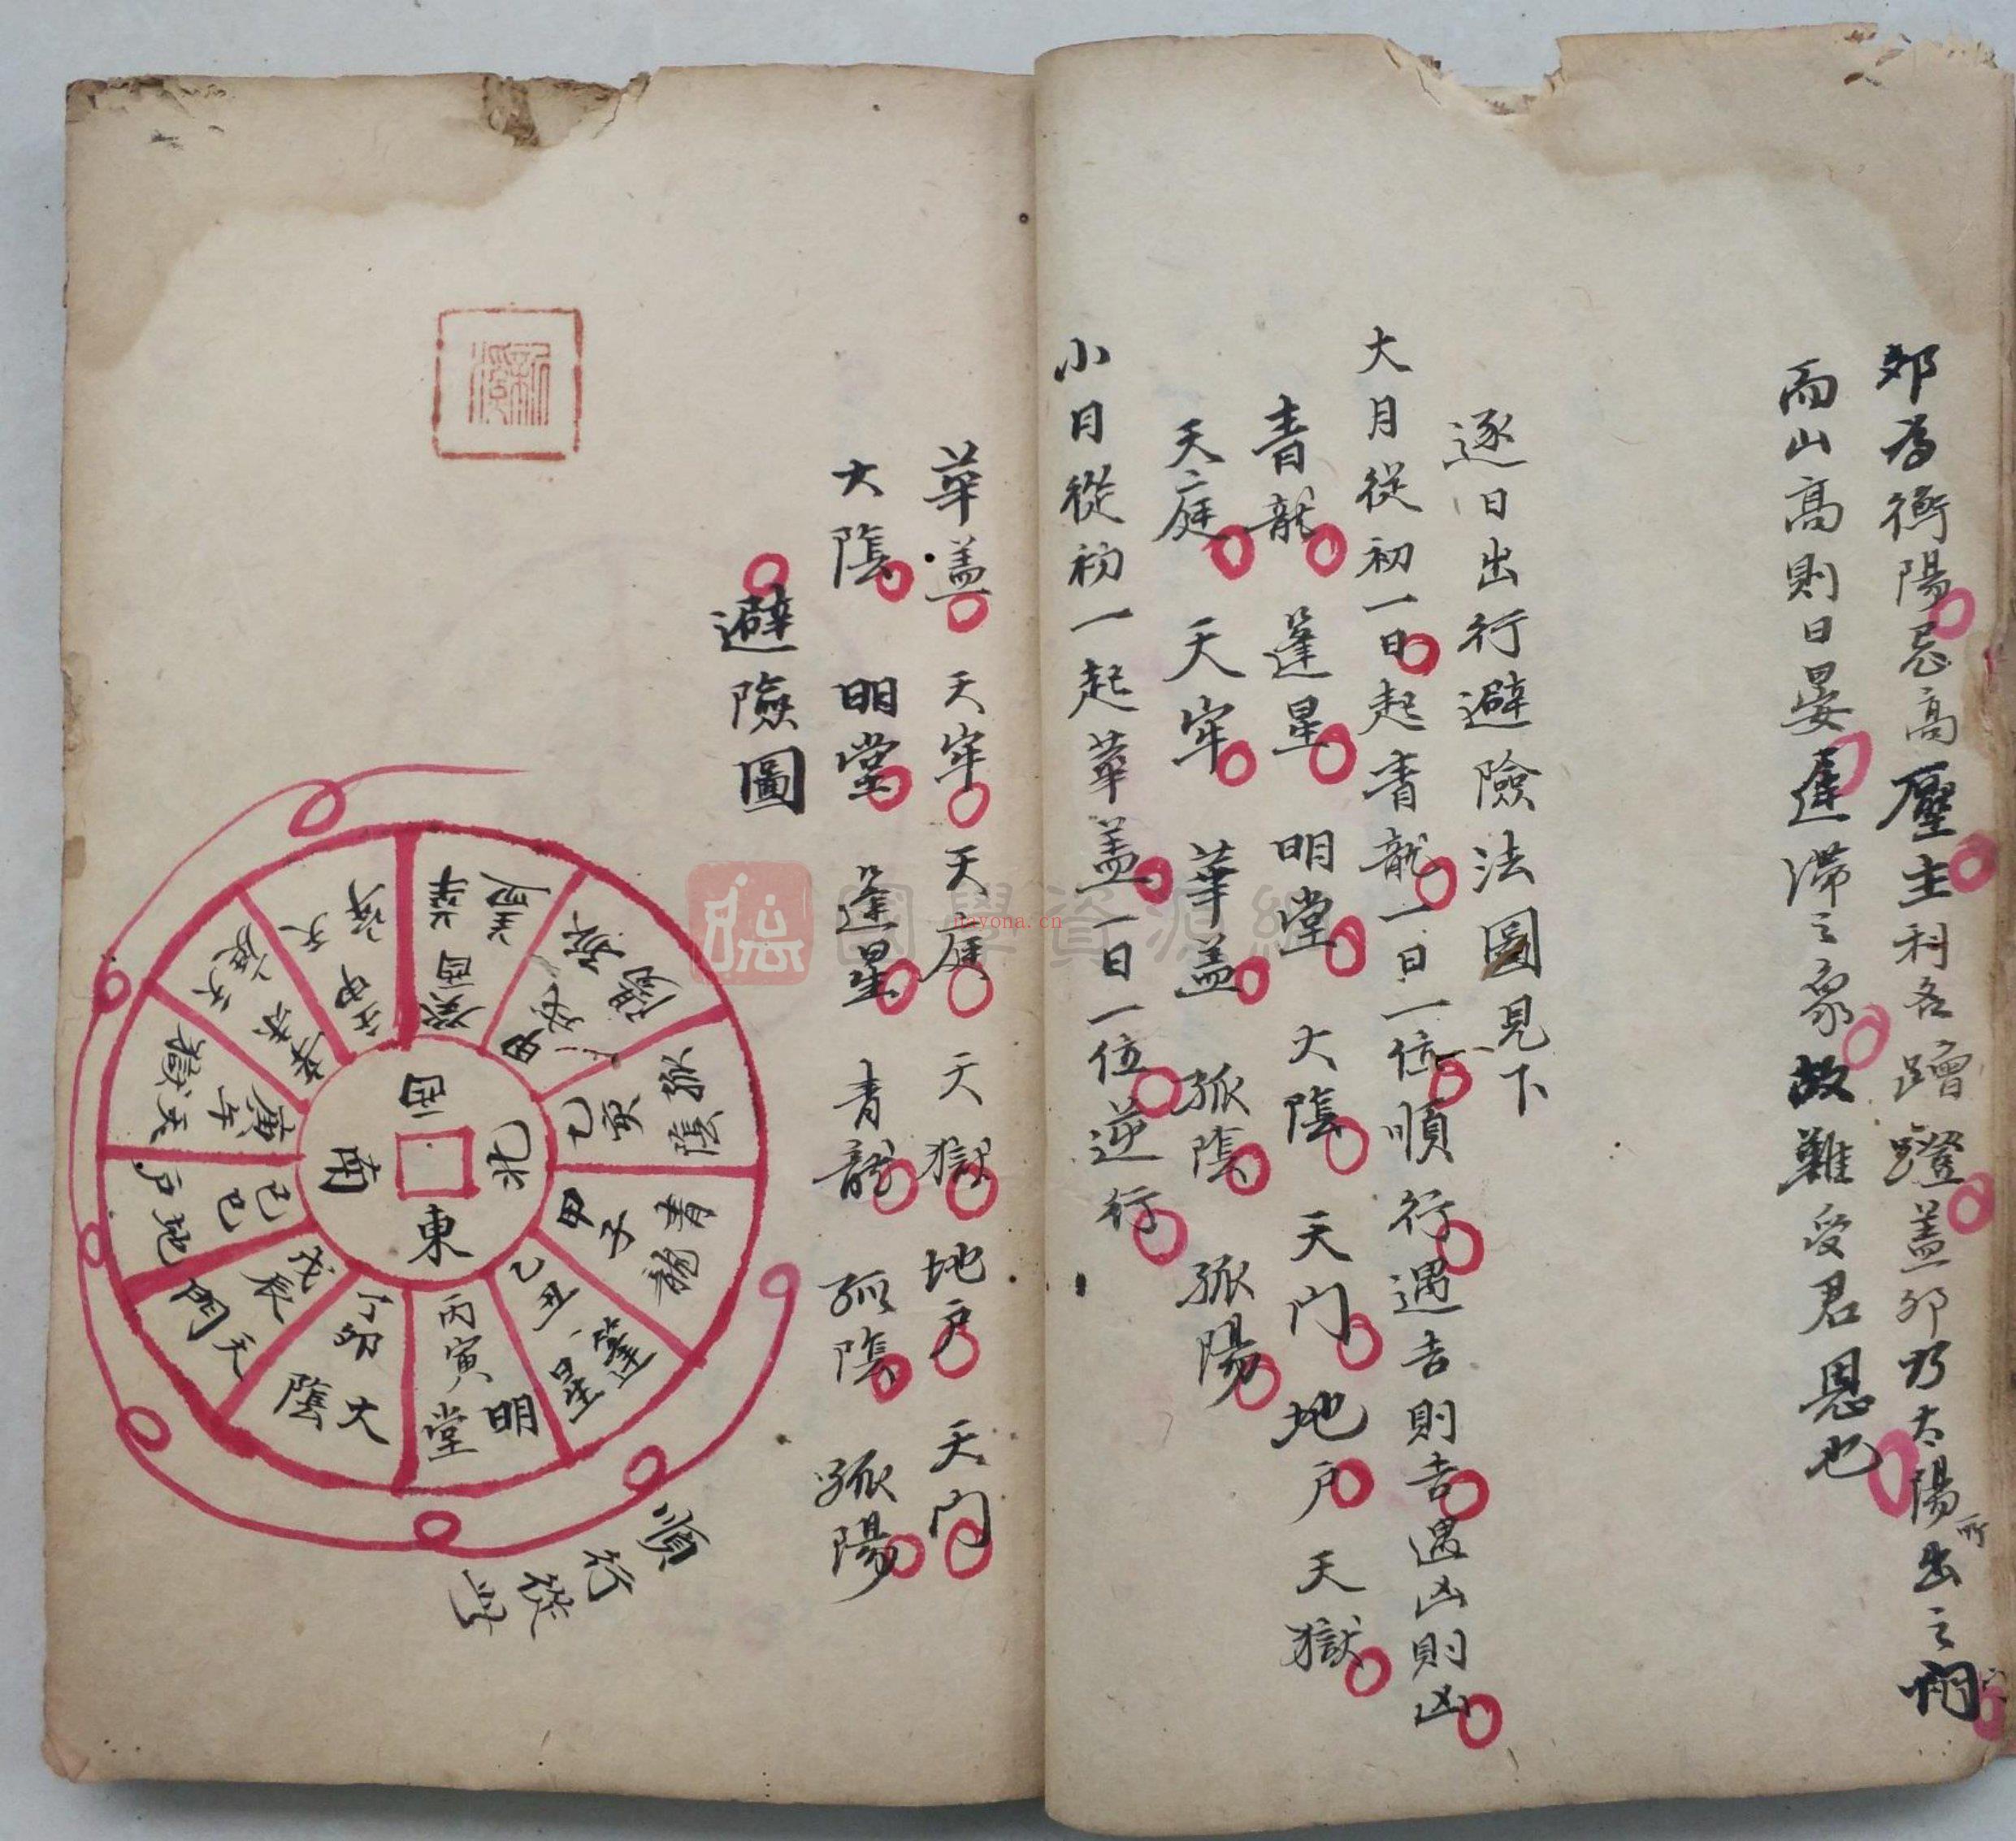 卯為衝陽忌高壓主利名蹭蹬蓋卯乃太陽所出之門
而山高則日晏遲滯之象故難受君恩也
逐日出行避險法圖見下
大月從初一日起青龍一日一位順行遇吉則吉遇凶則凶
青龍 蓬星 明堂 大陰 天门 地户 天獄
天庭 天牢 華盖 孤陰 孤陽
小月從初一起華盖一日一位逆行
華盖 天牢 天庭 天獄 地户 天门
大陰 明堂 蓬星 青龍 孤陰 孤陽
避險圖
西
北
東
南
華盖
癸酉
孤陽
甲戌
孤陰
乙亥
青龍
甲子
蓬星
乙丑
明堂
丙寅
大陰
丁卯
天門
戊辰
地户
己巳
天獄
庚午
天庭
辛未
天牢
壬申
順行從此
國學資源網
nayona.cn